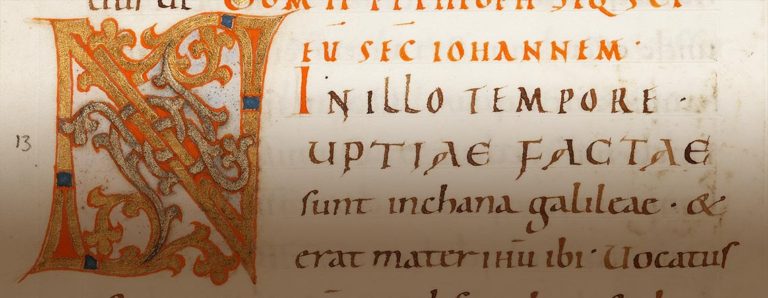 DOM II
EU SEC IOHANNEM·
IN ILLO TEMPORE·
13
NUPTIAE FACTAE
sunt inchana galileae · &
erat mater ihū ibi· Uocatus